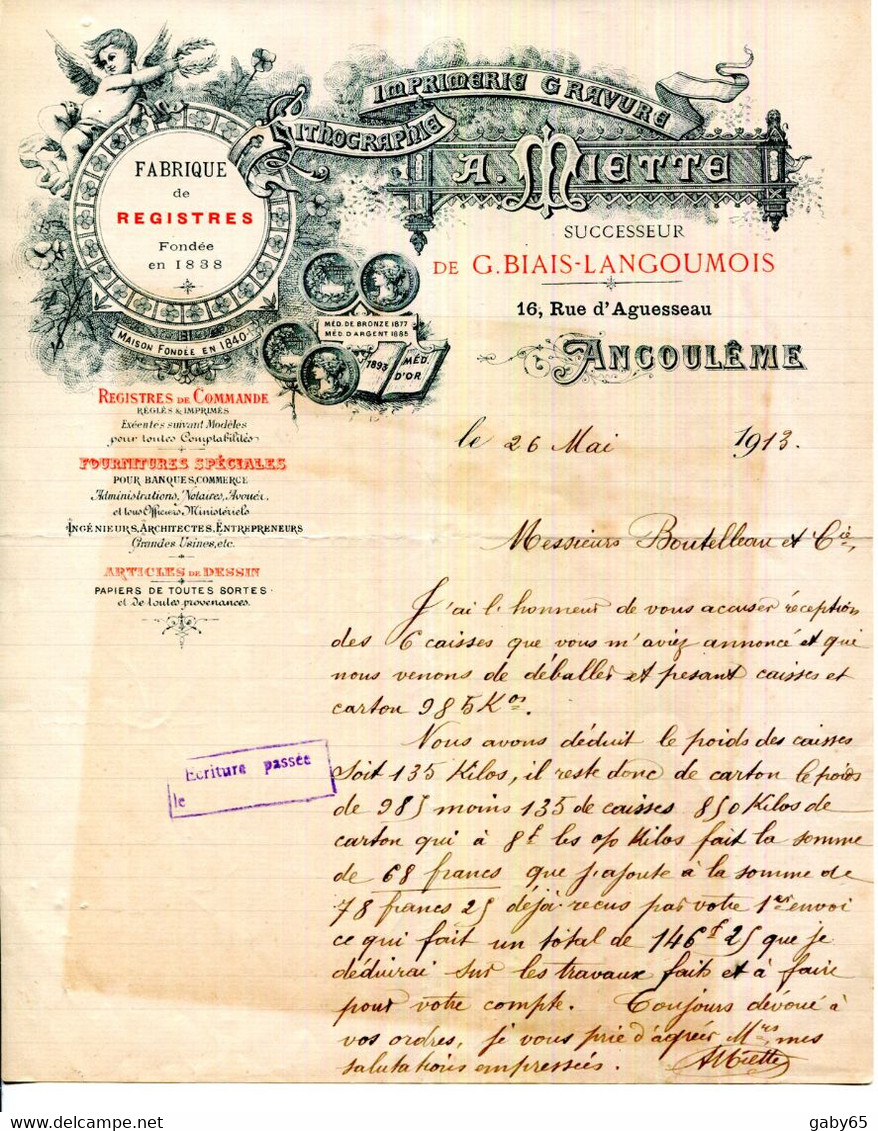 IMPRIMERIE GRAVURE
LITHOGRAPHIE
A. MIETTE
SUCCESSEUR
DE G. BIAIS-LANGOUMOIS
16, Rue d'Aguesseau
ANGOULÊME
FABRIQUE
de
REGISTRES
Fondée
en 1838
MAISON FONDÉE EN 1840
MÉD. DE BRONZE 1877
MÉD. D'ARGENT 1885
1893 MÉD.
D'OR
REGISTRES DE COMMANDE
RÉGLÉS & IMPRIMÉS
Exécutés suivant Modèles
pour toutes Comptabilités
FOURNITURES SPÉCIALES
POUR BANQUES, COMMERCE
Administrations, Notaires, Avoués,
et tous Officiers Ministériels
INGÉNIEURS, ARCHITECTES, ENTREPRENEURS
Grandes Usines, etc.
ARTICLES DE DESSIN
PAPIERS DE TOUTES SORTES
et de toutes provenances.
le 26 Mai 1913.
Messieurs Boutelleau et Cie,
J'ai l'honneur de vous accuser réception
des 6 caisses que vous m'aviez annoncé et qui
nous venons de déballer et pesant caisses et
carton 985 Kos.
Nous avons déduit le poids des caisses
soit 135 Kilos, il reste donc de carton le poids
de 985 moins 135 de caisses 850 Kilos de
carton qui à 8f les o/o Kilos fait la somme
de 68 francs que j'ajoute à la somme de
78 francs 25 déjà recus par votre 1er envoi
ce qui fait un total de 146f 25 que je
déduirai sur les travaux faits et à faire
pour votre compte. Toujours dévoué à
vos ordres, je vous prie d'agréer Mrs, mes
salutations empressées. AMiette
Ecriture passée
le
gaby65